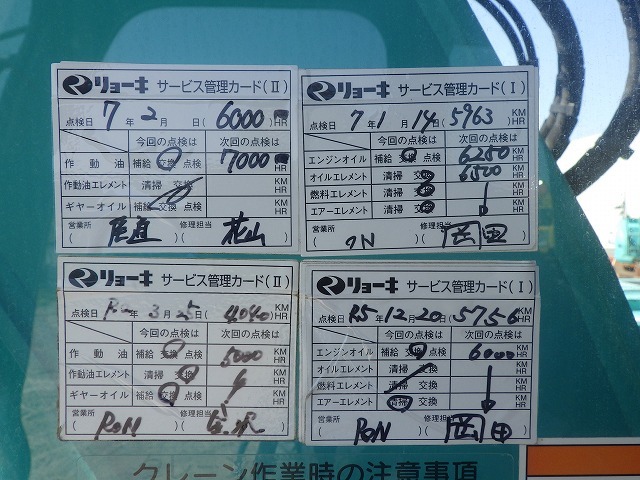 リョーキ サービス管理カード(Ⅱ)
点検日 7 年 2 月 日 (6000 HR)
今回の点検は 次回の点検は
作動油 補給 交換 点検 7000 KM HR
作動油エレメント 清掃 交換 KM HR
ギヤーオイル 補給 交換 点検 KM HR
営業所 修理担当
( ) ( 花山 )
リョーキ サービス管理カード(Ⅰ)
点検日 7 年 1 月 14 日 (5963 KM HR)
今回の点検は 次回の点検は
エンジンオイル 補給 交換 点検 6250 KM HR
オイルエレメント 清掃 交換 6500 KM HR
燃料エレメント 清掃 交換 KM HR
エアーエレメント 清掃 交換 KM HR
営業所 修理担当
( ) ( 岡田 )
リョーキ サービス管理カード(Ⅱ)
点検日 年 3 月 25 日 (4040 KM HR)
今回の点検は 次回の点検は
作動油 補給 交換 点検 5000 KM HR
作動油エレメント 清掃 交換 KM HR
ギヤーオイル 補給 交換 点検 KM HR
営業所 修理担当
( ) ( )
リョーキ サービス管理カード(Ⅰ)
点検日 R5 年 12 月 20 日 (5756 KM HR)
今回の点検は 次回の点検は
エンジンオイル 補給 交換 点検 6000 KM HR
オイルエレメント 清掃 交換 KM HR
燃料エレメント 清掃 交換 KM HR
エアーエレメント 清掃 交換 KM HR
営業所 修理担当
( ) ( 岡田 )
クレーン作業時の注意事項